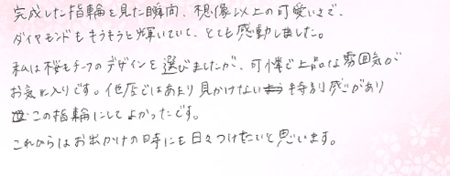 完成した指輪を見た瞬間、想像以上の可愛いさで、
ダイヤモンドもキラキラと輝いていて、とても感動しました。
私は桜モチーフのデザインを選びましたが、可憐で上品な雰囲気が
お気に入りです。他店ではあまり見かけない特別感があり
この指輪にしてよかったです。
これからはお出かけの時にも日々つけたいと思います。